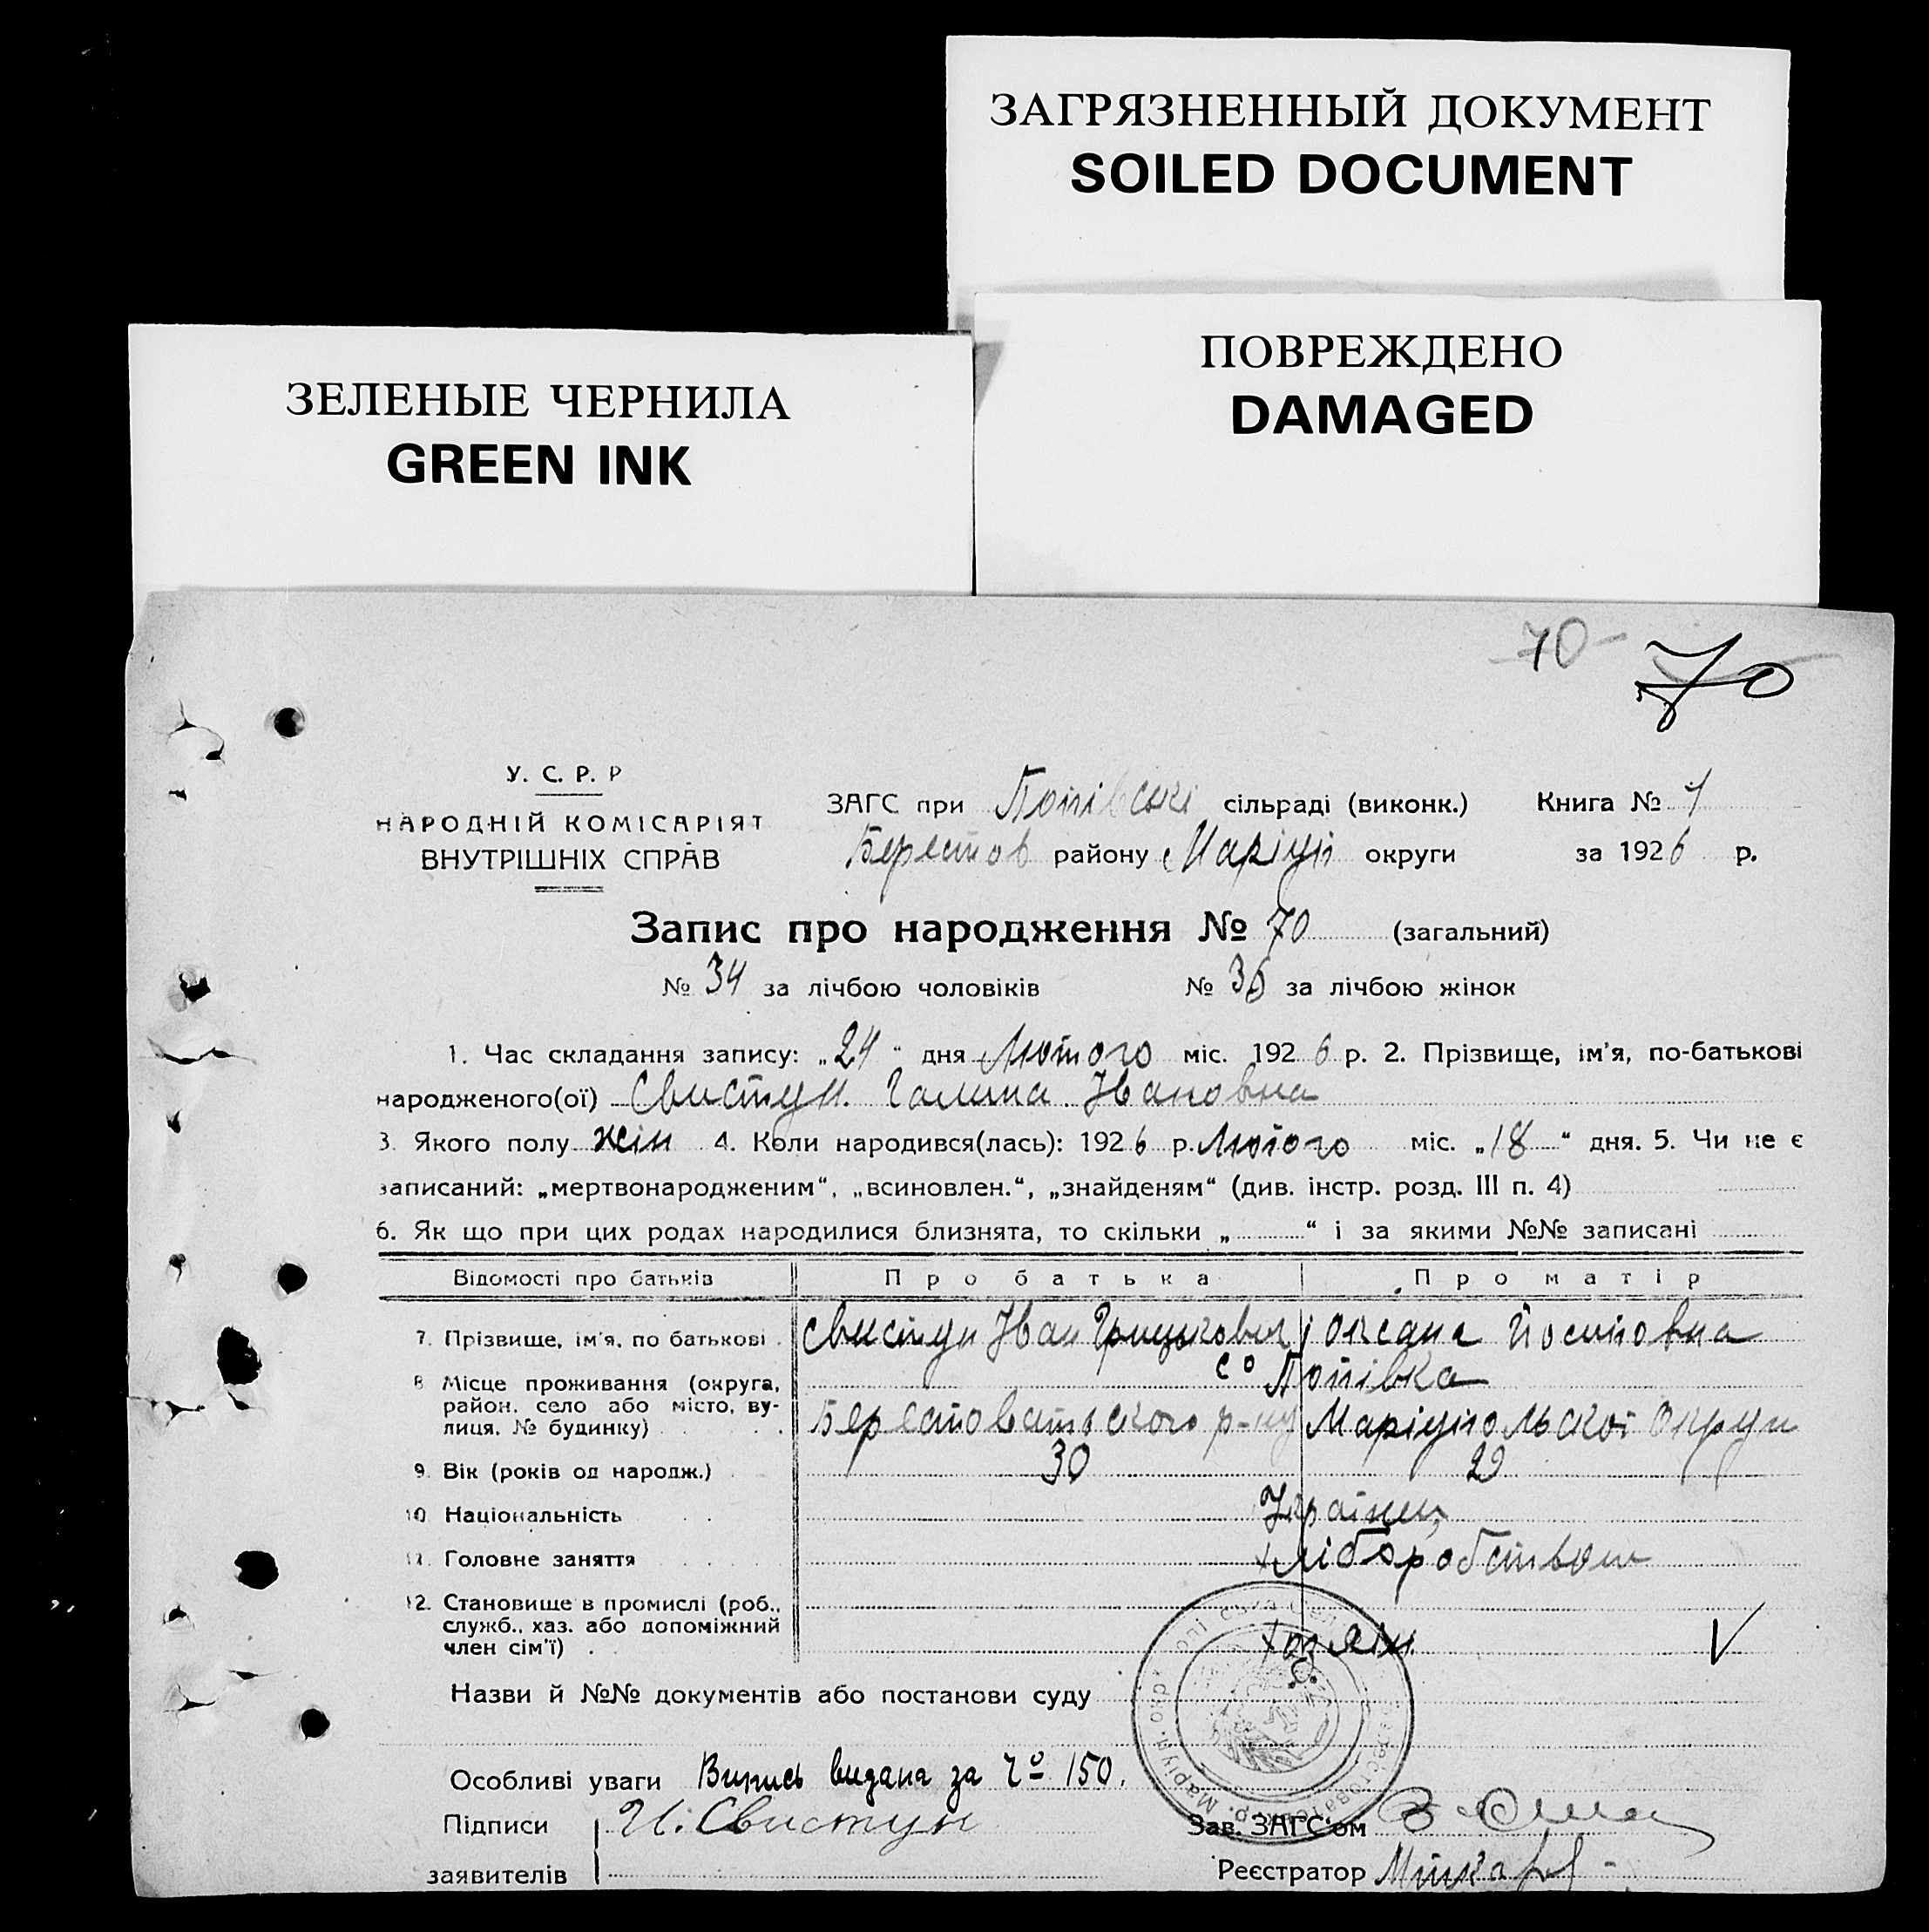 ЗАГРЯЗНЕННЫЙ ДОКУМЕНТ
SOILED DOCUMENT
ПОВРЕЖДЕНО
DAMAGED
ЗЕЛЕНЫЕ ЧЕРНИЛА
GREEN INK
70
70
У. С. Р. Р
НАРОДНІЙ КОМІСАРІЯТ
ВНУТРІШНІХ СПРАВ
ЗАГС при Попівські сільраді (виконк.) Книга № 1
Берестов району Маріуп округи за 1926 р.
Запис про народження № 70 (загальний)
№ 34 за лічбою чоловіків № 36 за лічбою жінок
1. Час складання запису: „24“ дня Лютого міс. 1926 р. 2. Прізвище, ім'я, по-батькові
народженого(ої) Свистун Галина Івановна
3. Якого полу жін 4. Коли народився(лась): 1926 р. Лютого міс. „18“ дня. 5. Чи не є
записаний: „мертвонародженим“, „всиновлен.“, „знайденям“ (див. інстр. розд. III п. 4)
6. Як що при цих родах народилися близнята, то скільки „ “ і за якими №№ записані
Відомості про батьків Про батька Про матір
7. Прізвище, ім'я, по батькові Свистун Іван Грицькович Оксана Йосиповна
8 Місце проживання (округа, район, село або місто, вулиця, № будинку) со Попівка
Берестоватського р-ну Маріупольскої Округи
9. Вік (років од народж.) 30 29
10. Національність Українці
11. Головне заняття хліборобством
12. Становище в промислі (роб., служб., хаз. або допоміжний член сім'ї)
Назви й №№ документів або постанови суду
Особливі уваги Випись видана за № 150.
Підписи И. Свистун Зав. ЗАГС'ом
заявителів Реєстратор